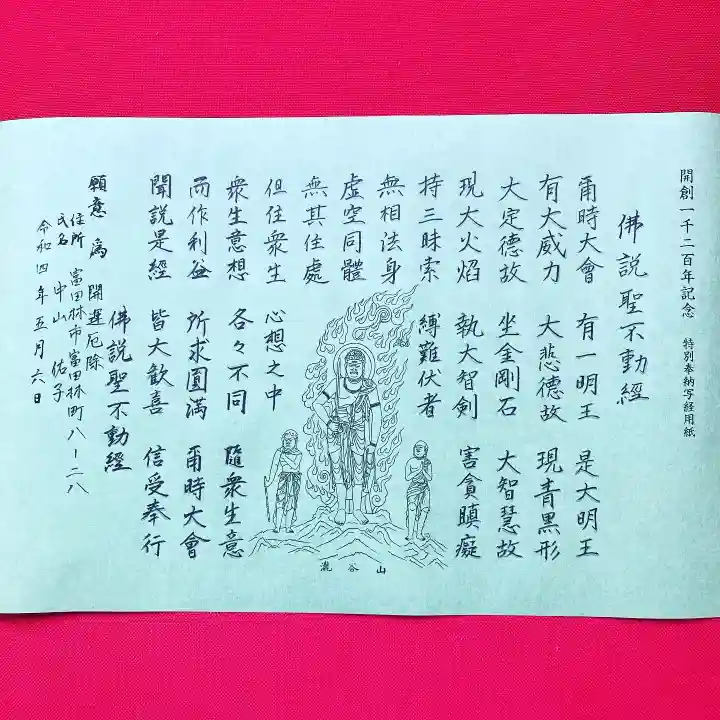 開創一千二百年記念 特別奉納写経用紙
佛説聖不動經
爾時大會 有一明王 是大明王
有大威力 大悲德故 現青黒形
大定德故 坐金剛石 大智慧故
現大火焔 執大智剣 害貪瞋癡
持三昧索 縛難伏者
無相法身
虚空同體
無其住處
但住衆生 心想之中
衆生意想 各々不同 隨衆生意
而作利益 所求圓滿 爾時大會
聞説是經 皆大歡喜 信受奉行
佛説聖不動經
願意 為 開運厄除
住所 富田林市富田林町八ー二八
氏名 中山 佑子
令和四年五月六日
瀧谷山